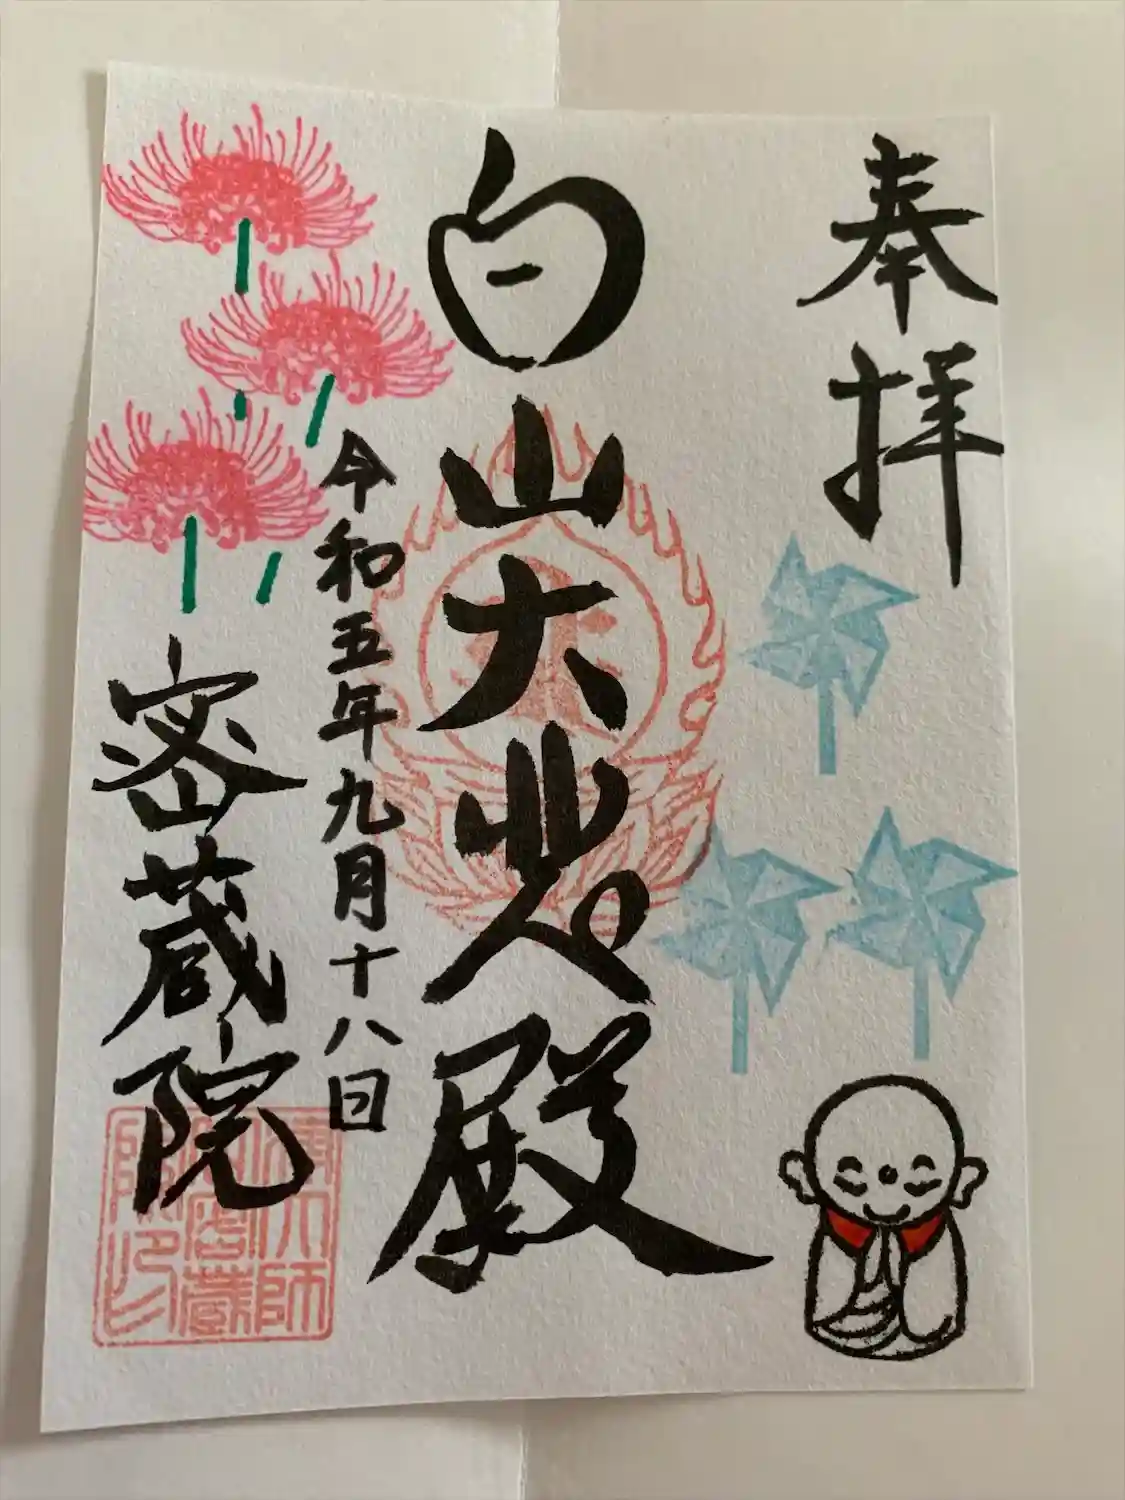 奉拝
白山大悲殿
令和五年九月十八日
密蔵院